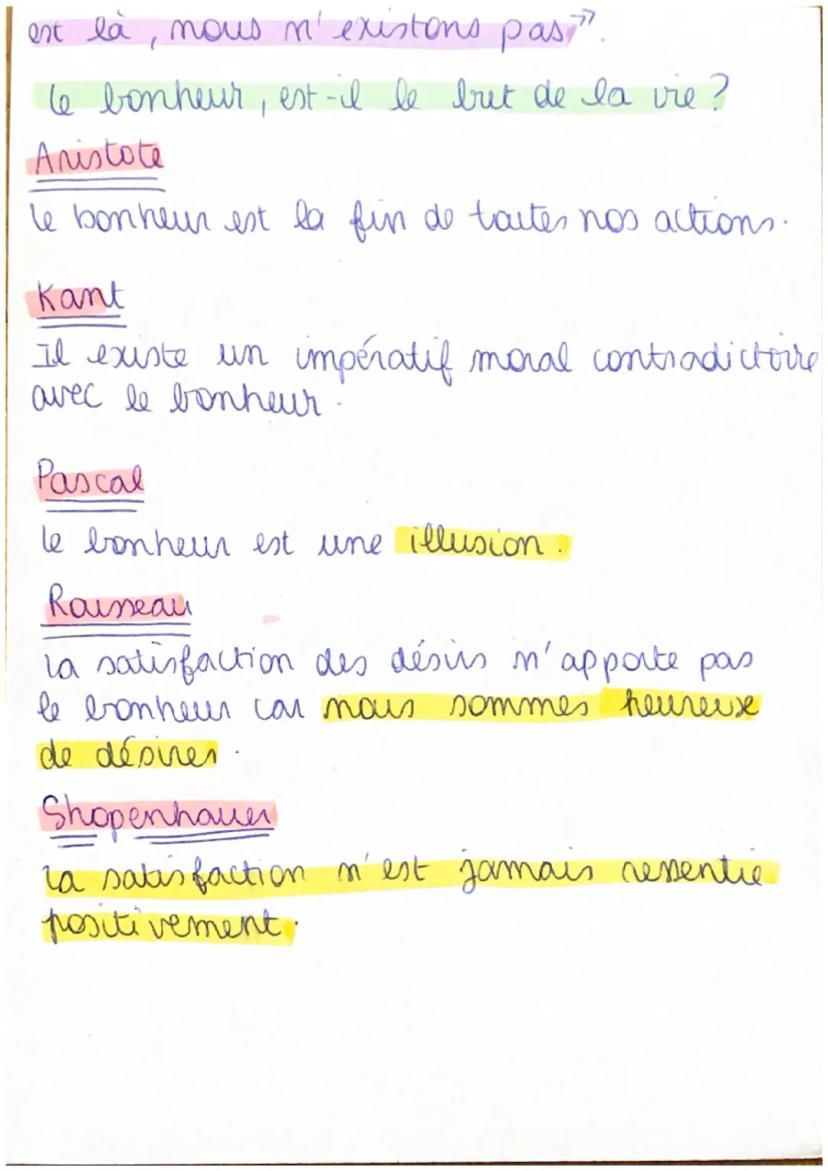 est là, nous n'existons pas".
le bonheur, est-il le but de la vie ?
Aristote
le bonheur est la fin de toutes nos actions.
Kant
Il existe un impératif moral contradictoire
avec le bonheur.
Pascal
le bonheur est une illusion.
Rousseau
la satisfaction des désirs n'apporte pas
le bonheur car nous sommes heureuse
de désirer.
Shopenhauer
la satisfaction n'est jamais ressentie
positivement.